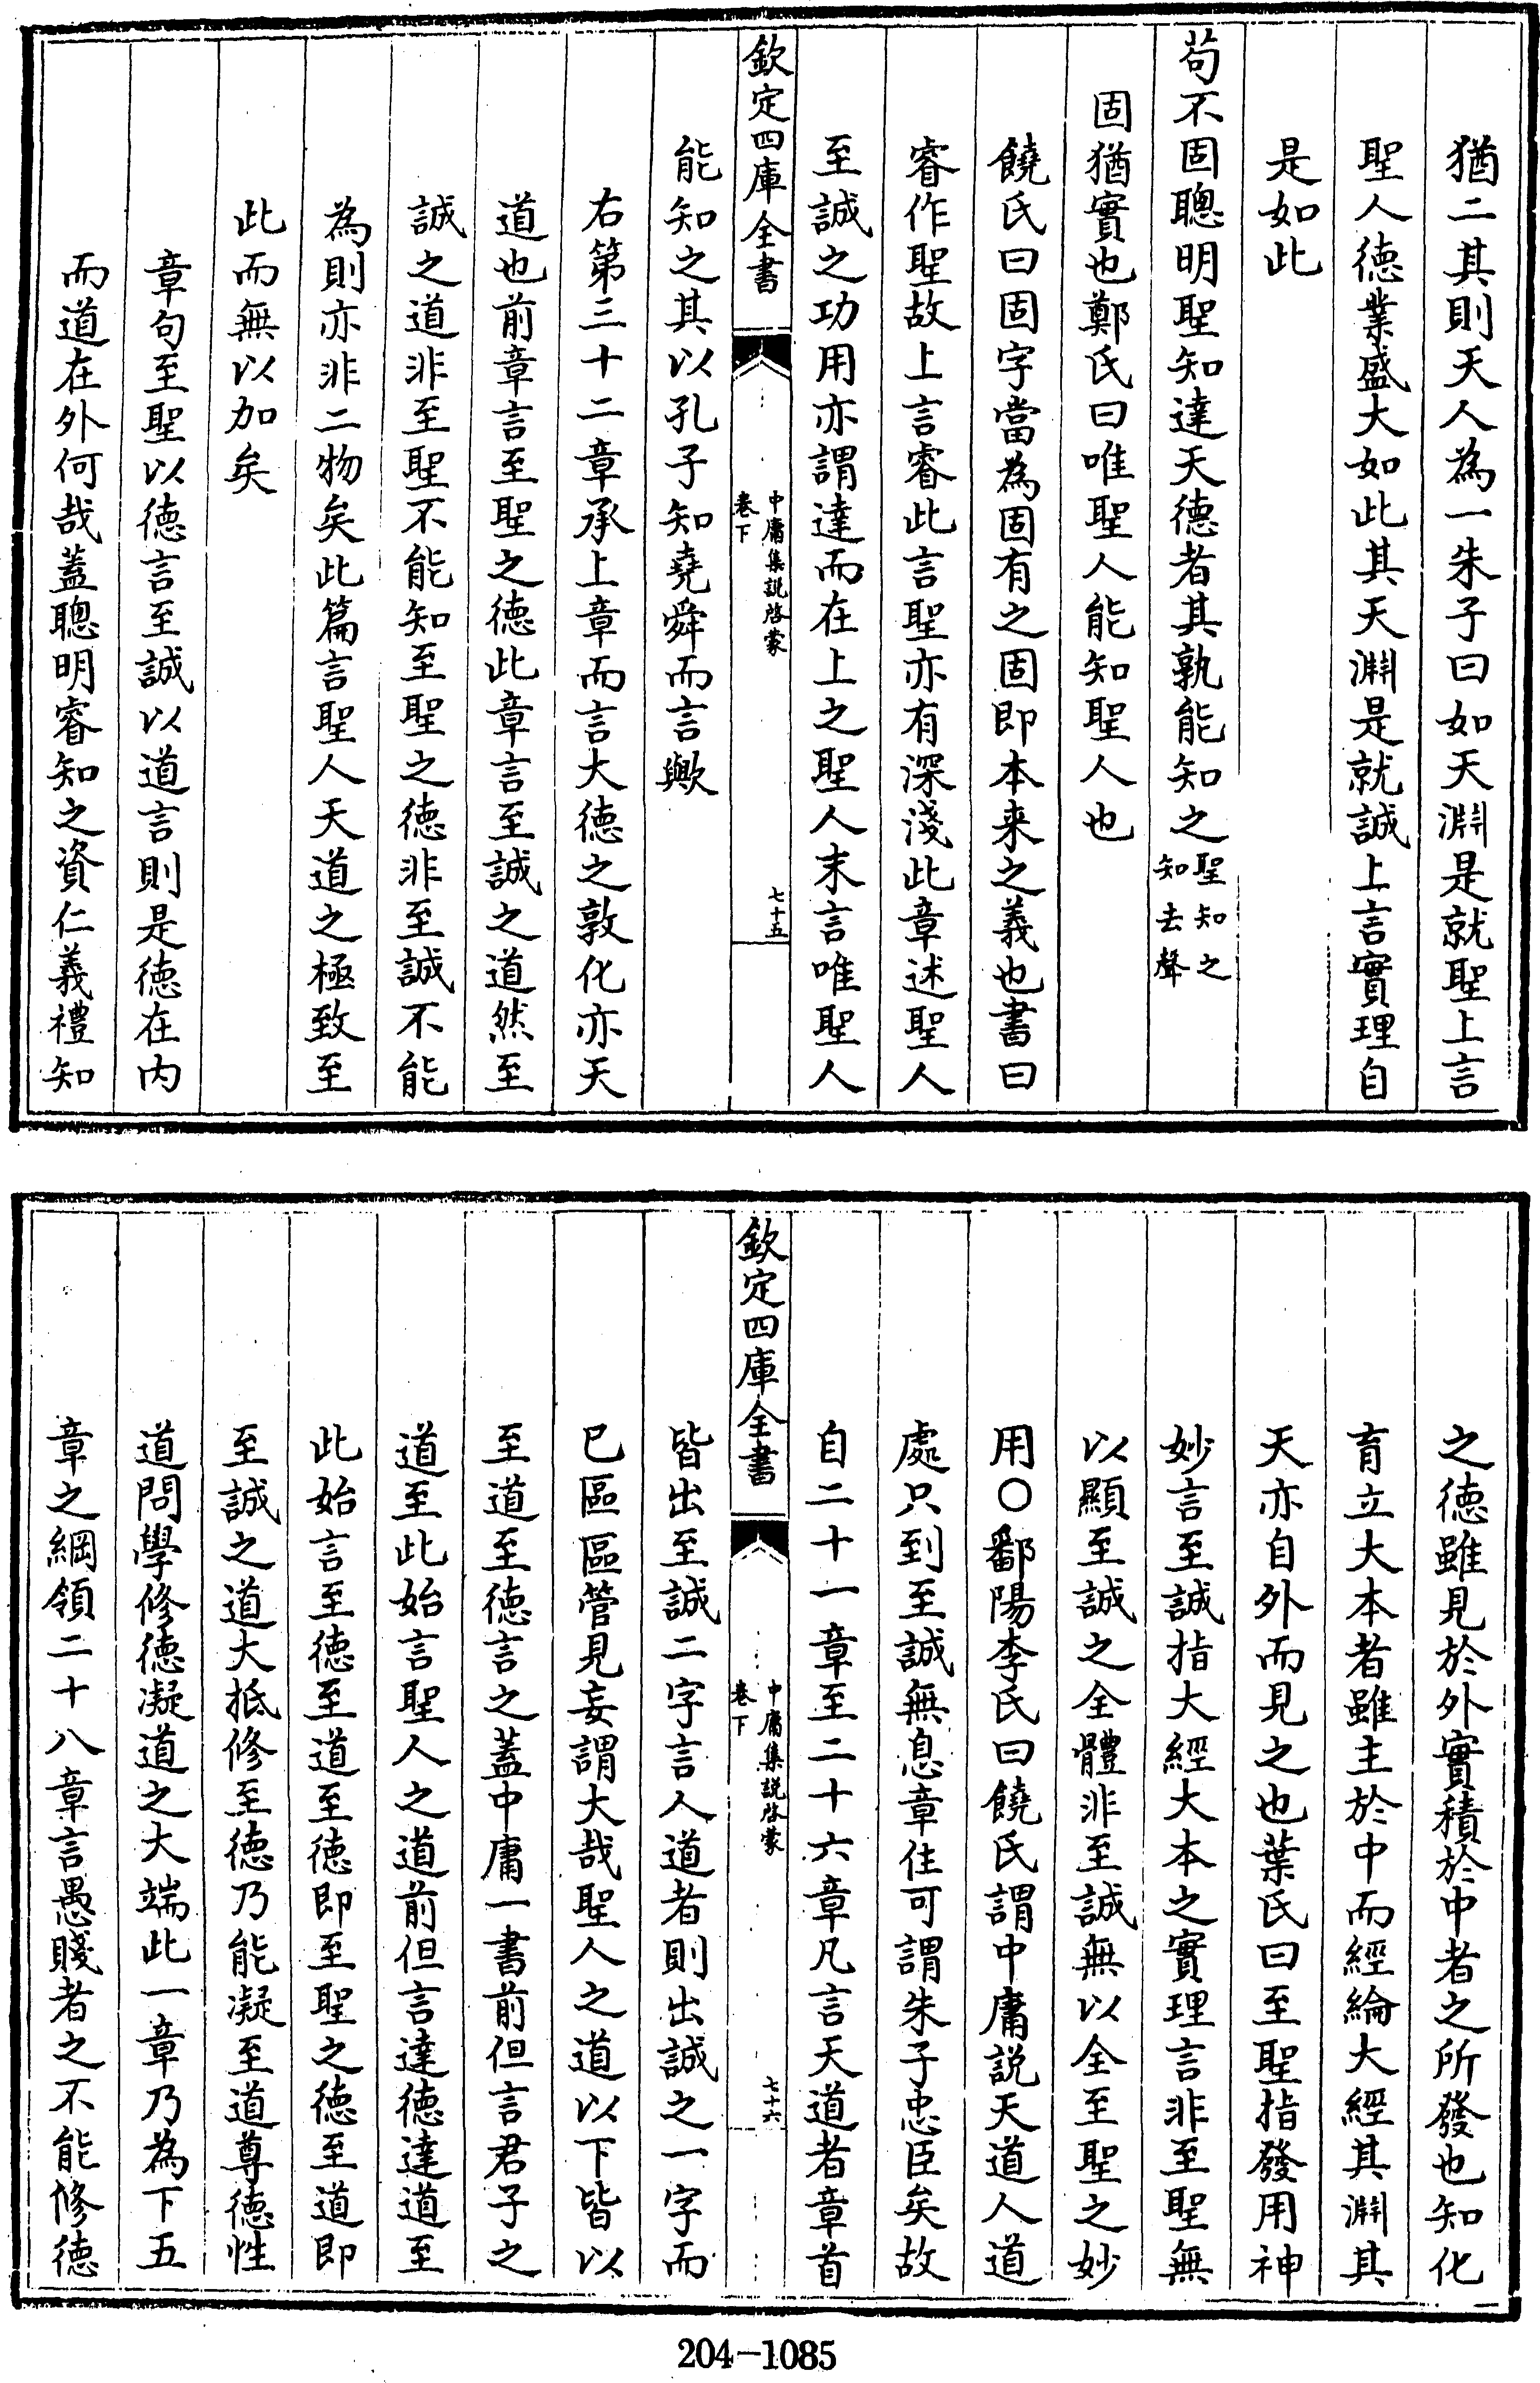 猶二其則天人為一朱子曰如天淵是就聖上言
聖人徳業盛大如此其天淵是就誠上言實理自
是如此
苟不固聰明聖知達天徳者其孰能知之聖知之知去聲
固猶實也鄭氏曰唯聖人能知聖人也
饒氏曰固字當為固有之固即本来之義也書曰
睿作聖故上言睿此言聖亦有深淺此章述聖人
至誠之功用亦謂達而在上之聖人末言唯聖人
欽定四庫全書
中庸集説啓蒙
卷下
七十五
能知之其以孔子知堯舜而言歟
右第三十二章承上章而言大徳之敦化亦天
道也前章言至聖之徳此章言至誠之道然至
誠之道非至聖不能知至聖之徳非至誠不能
為則亦非二物矣此篇言聖人天道之極致至
此而無以加矣
章句至聖以徳言至誠以道言則是徳在内
而道在外何哉蓋聰明睿知之資仁義禮知
之徳雖見於外實積於中者之所發也知化
育立大本者雖主於中而經綸大經其淵其
天亦自外而見之也葉氏曰至聖指發用神
妙言至誠指大經大本之實理言非至聖無
以顯至誠之全體非至誠無以全至聖之妙
用〇鄱陽李氏曰饒氏謂中庸説天道人道
處只到至誠無息章住可謂朱子忠臣矣故
自二十一章至二十六章凡言天道者章首
欽定四庫全書
中庸集説啓蒙
卷下
七十六
皆出至誠二字言人道者則出誠之一字而
已區區管見妄謂大哉聖人之道以下皆以
至道至徳言之蓋中庸一書前但言君子之
道至此始言聖人之道前但言達徳達道至
此始言至徳至道至徳即至聖之徳至道即
至誠之道大抵修至徳乃能凝至道尊徳性
道問學修徳凝道之大端此一章乃為下五
章之綱領二十八章言愚賤者之不能修徳
204-1085